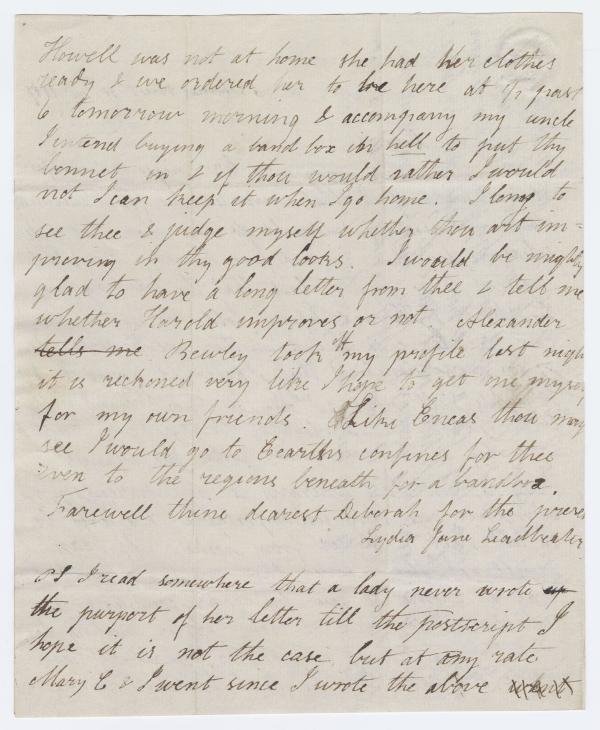 Howell was not at home she had her clothes
ready & we ordered her to be here at ½ past
6 tomorrow morning & accompany my uncle
I intend buying a band box in hell to put thy
bonnet in & if thou would rather I would
not I can keep it when I go home. I long to
see thee & judge myself whether thou art im=
proving in thy good looks. I would be mighty
glad to have a long letter from thee & tell me
whether Harold improves or not. Alexander
tells me Bewley took off my profile last nigh
it is reckoned very like I hope to get one myse
for my own friends. Like Eneas thou may
see I would go to Eearths confines for thee
even to the regions beneath for a bandbox.
Farewell thine dearest Deborah for the prese
Lydia Jane Leadbeater
PS I read somewhere that a lady never wrote up
the purport of her letter till the postscript I
hope it is not the case but at any rate
Mary C & I went since I wrote the above